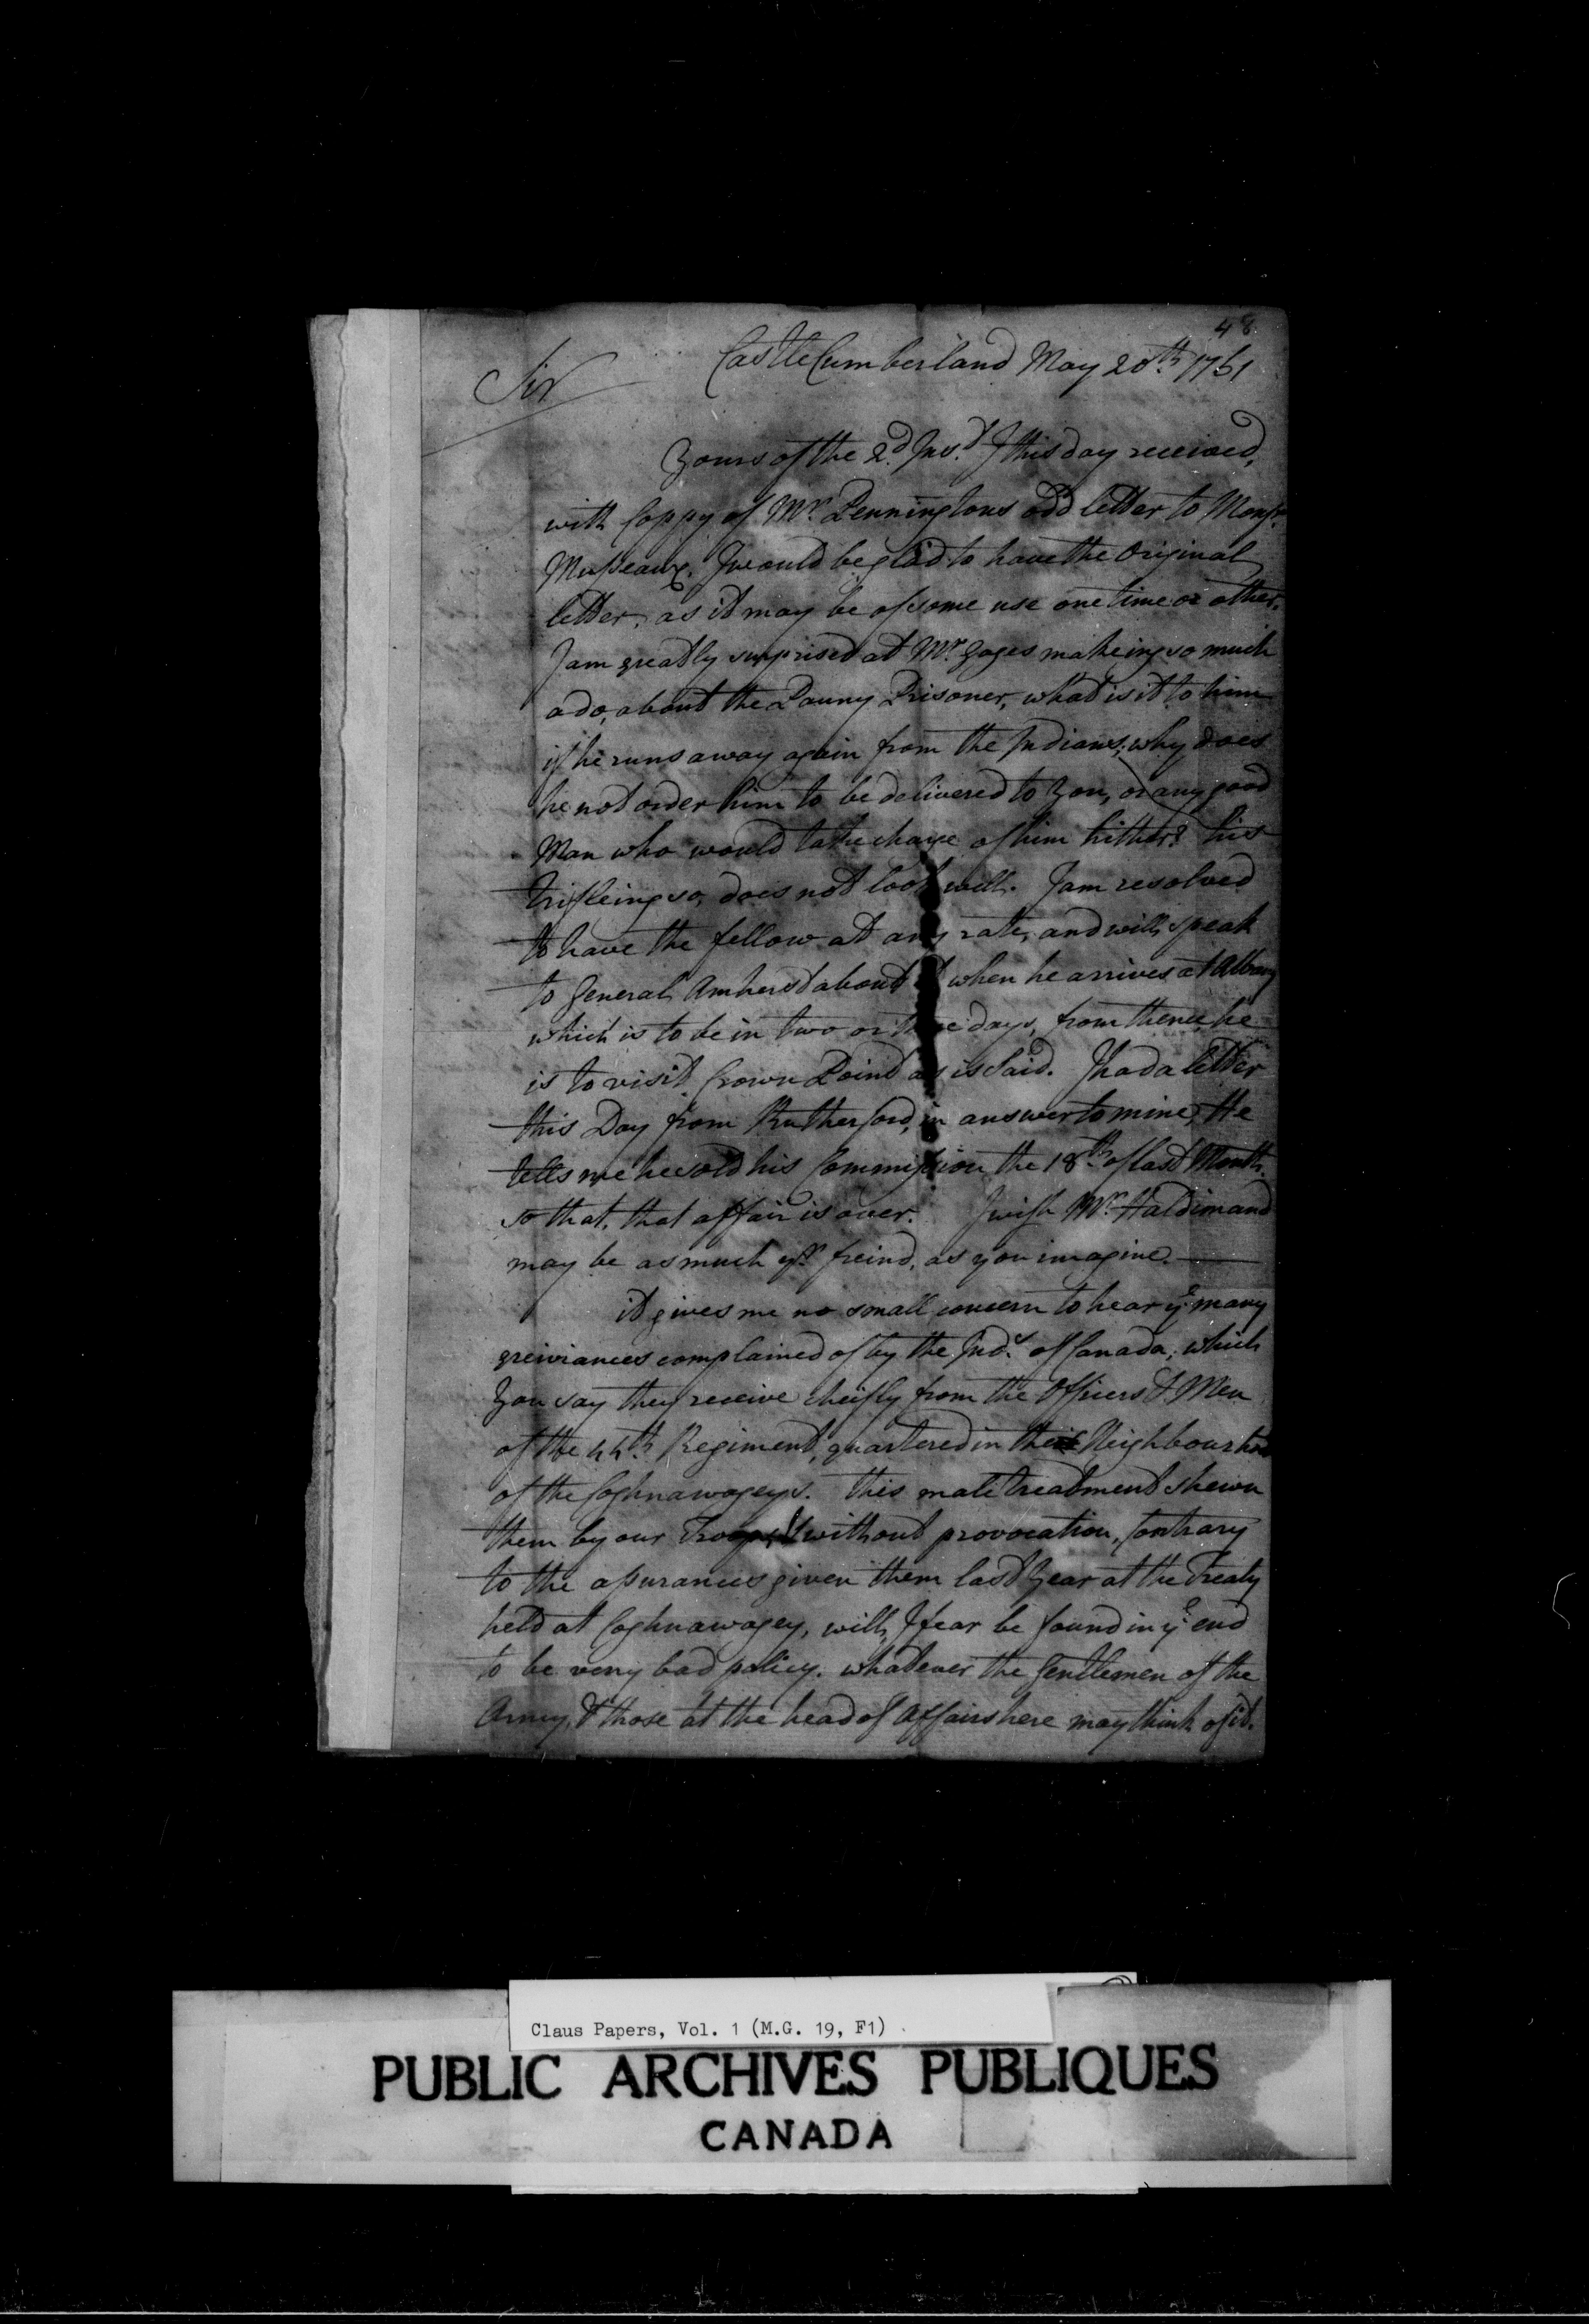 48
Castle Cumberland May 20th. 1761
Sir
Yours of the 2d. Inst. I this day received,
with Coppy of Mr. Penningtons odd letter to Monsr.
Musseaux. I would be glad to have the Original
letter, as it may be of some use one time or other.
I am greatly surprised at Mr. Gages makeing so much
ado, about the Pauny Prisoner, what is it to him
if he runs away again from the Indians; why does
he not order him to be delivered to You, or any good
Man who would take charge of him hither? his
trifleing so, does not look well. I am resolved
to have the fellow at any rate, and will speak
to General Amherst about it when he arrives at Albany
which is to be in two or three days, from thence he
is to visit Crown Point as is Said. I had a letter
this Day from Rutherford, in answer to mine, He
tells me he sold his Commission the 18th. of last Month.
so that, that affair is over. I wish Mr. Haldimand
may be as much yr. freind, as you imagine.
it gives me no small concern to hear ye. many
greiviances complained of by the Inds. of Canada, which
You say they receive cheifly from the Officers & Men
of the 44th. Regiment, quartered in the Neighbourhood
of the Coghnawageys. this male treatment shewn
them by our Troops, without provocation, Contrary
to the assurances given them last Year at the Treaty
held at Coghnawagey, will, I fear be found in ye. end
to be very bad policy. whatever the Gentlemen of the
Army, & those at the head of Affairs here may think of it.
Claus Papers, Vol. 1 (M.G. 19, F1)
PUBLIC ARCHIVES PUBLIQUES
CANADA